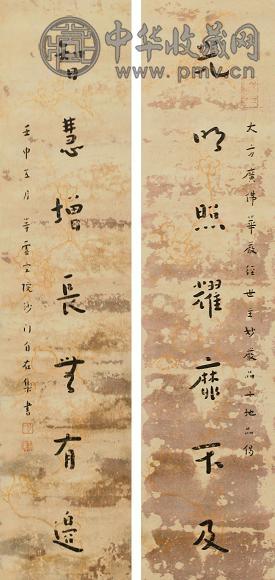 中华收藏网
大方廣佛華嚴經世主妙嚴品十地品偈
光明照耀靡不及
智慧增長無有邊
壬申五月 院沙门自在集書